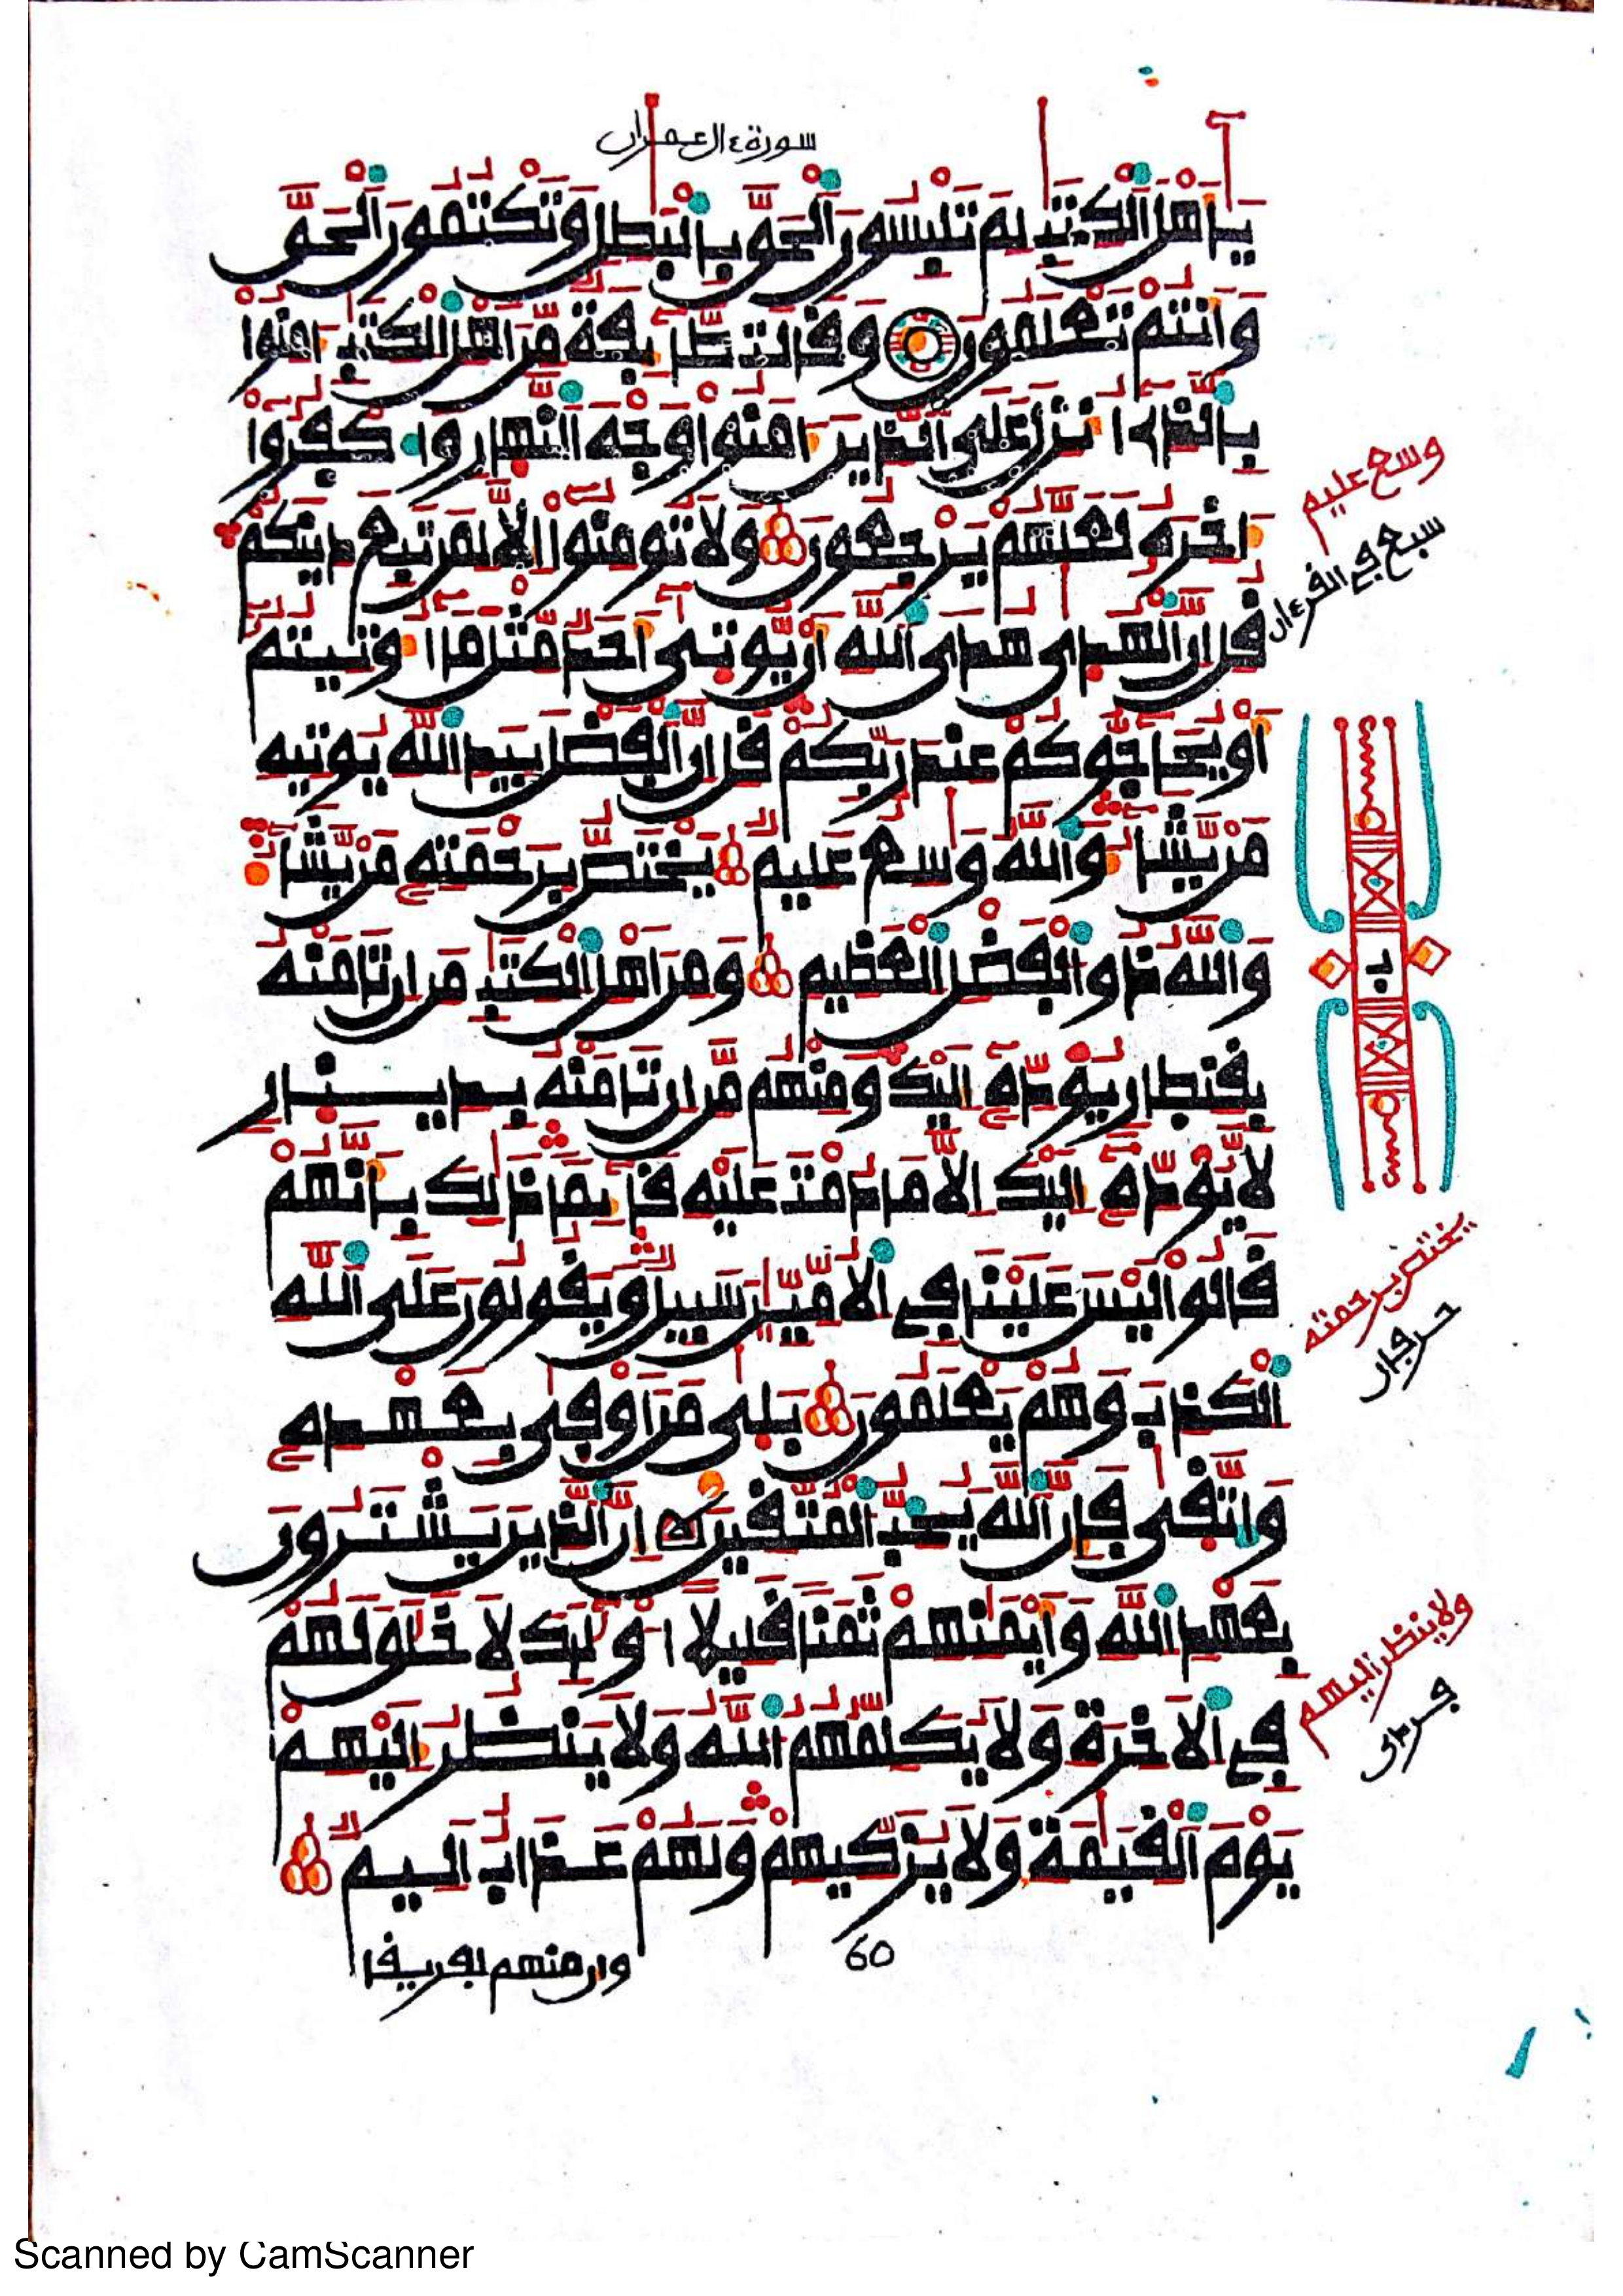 سورة ءال عمران
يَٰأَهْلَ ٱلْكِتَٰبِ لِمَ تَلْبِسُونَ ٱلْحَقَّ بِٱلْبَٰطِلِ وَتَكْتُمُونَ ٱلْحَقَّ
وَأَنتُمْ تَعْلَمُونَ وَقَالَت طَّآئِفَةٌ مِّنْ أَهْلِ ٱلْكِتَٰبِ ءَامِنُواْ
بِٱلَّذِىٓ أُنزِلَ عَلَى ٱلَّذِينَ ءَامَنُواْ وَجْهَ ٱلنَّهَارِ وَٱكْفُرُوٓاْ
ءَاخِرَهُۥ لَعَلَّهُمْ يَرْجِعُونَ وَلَا تُومِنُوٓاْ إِلَّا لِمَن تَبِعَ دِينَكُمْ
قُلْ إِنَّ ٱلْهُدَىٰ هُدَى ٱللَّهِ أَنْ يُّوتَىٰٓ أَحَدٌ مِّثْلَ مَآ أُوتِيتُمُۥٓ
أَوْ يُحَآجُّوكُمْ عِندَ رَبِّكُمْ قُلِ إِنَّ ٱلْفَضْلَ بِيَدِ ٱللَّهِ يُوتِيهِ
مَنْ يَّشَآءُ وَٱللَّهُ وَٰسِعٌ عَلِيمٌ يَخْتَصُّ بِرَحْمَتِهِۦ مَنْ يَّشَآءُ
وَٱللَّهُ ذُو ٱلْفَضْلِ ٱلْعَظِيمِ وَمِنْ أَهْلِ ٱلْكِتَٰبِ مَنْ إِن تَامَنْهُ
بِقِنطَارٍ يُوَدِّهِۦٓ إِلَيْكَ وَمِنْهُم مَّنْ إِن تَامَنْهُ بِدِينَارٍ
لَّا يُوَدِّهِۦٓ إِلَيْكَ إِلَّا مَا دُمْتَ عَلَيْهِ قَآئِمًا ذَٰلِكَ بِأَنَّهُمْ
قَالُواْ لَيْسَ عَلَيْنَا فِى ٱلْأُمِّيِّۦنَ سَبِيلٌ وَيَقُولُونَ عَلَى ٱللَّهِ
ٱلْكَذِبَ وَهُمْ يَعْلَمُونَ بَلَىٰ مَنْ أَوْفَىٰ بِعَهْدِهِۦ
وَٱتَّقَىٰ فَإِنَّ ٱللَّهَ يُحِبُّ ٱلْمُتَّقِينَ إِنَّ ٱلَّذِينَ يَشْتَرُونَ
بِعَهْدِ ٱللَّهِ وَأَيْمَٰنِهِمْ ثَمَنًا قَلِيلًا أُوْلَٰٓئِكَ لَا خَلَٰقَ لَهُمْ
فِى ٱلْأَخِرَةِ وَلَا يُكَلِّمُهُمُ ٱللَّهُ وَلَا يَنظُرُ إِلَيْهِمْ
يَوْمَ ٱلْقِيَٰمَةِ وَلَا يُزَكِّيهِمْ وَلَهُمْ عَذَابٌ أَلِيمٌ
وسع عليم
سبع في القرءان
يختص برحمته
حرفان
ولا ينظر إليهم
فردى
60
وإن منهم لفريقا
Scanned by CamScanner